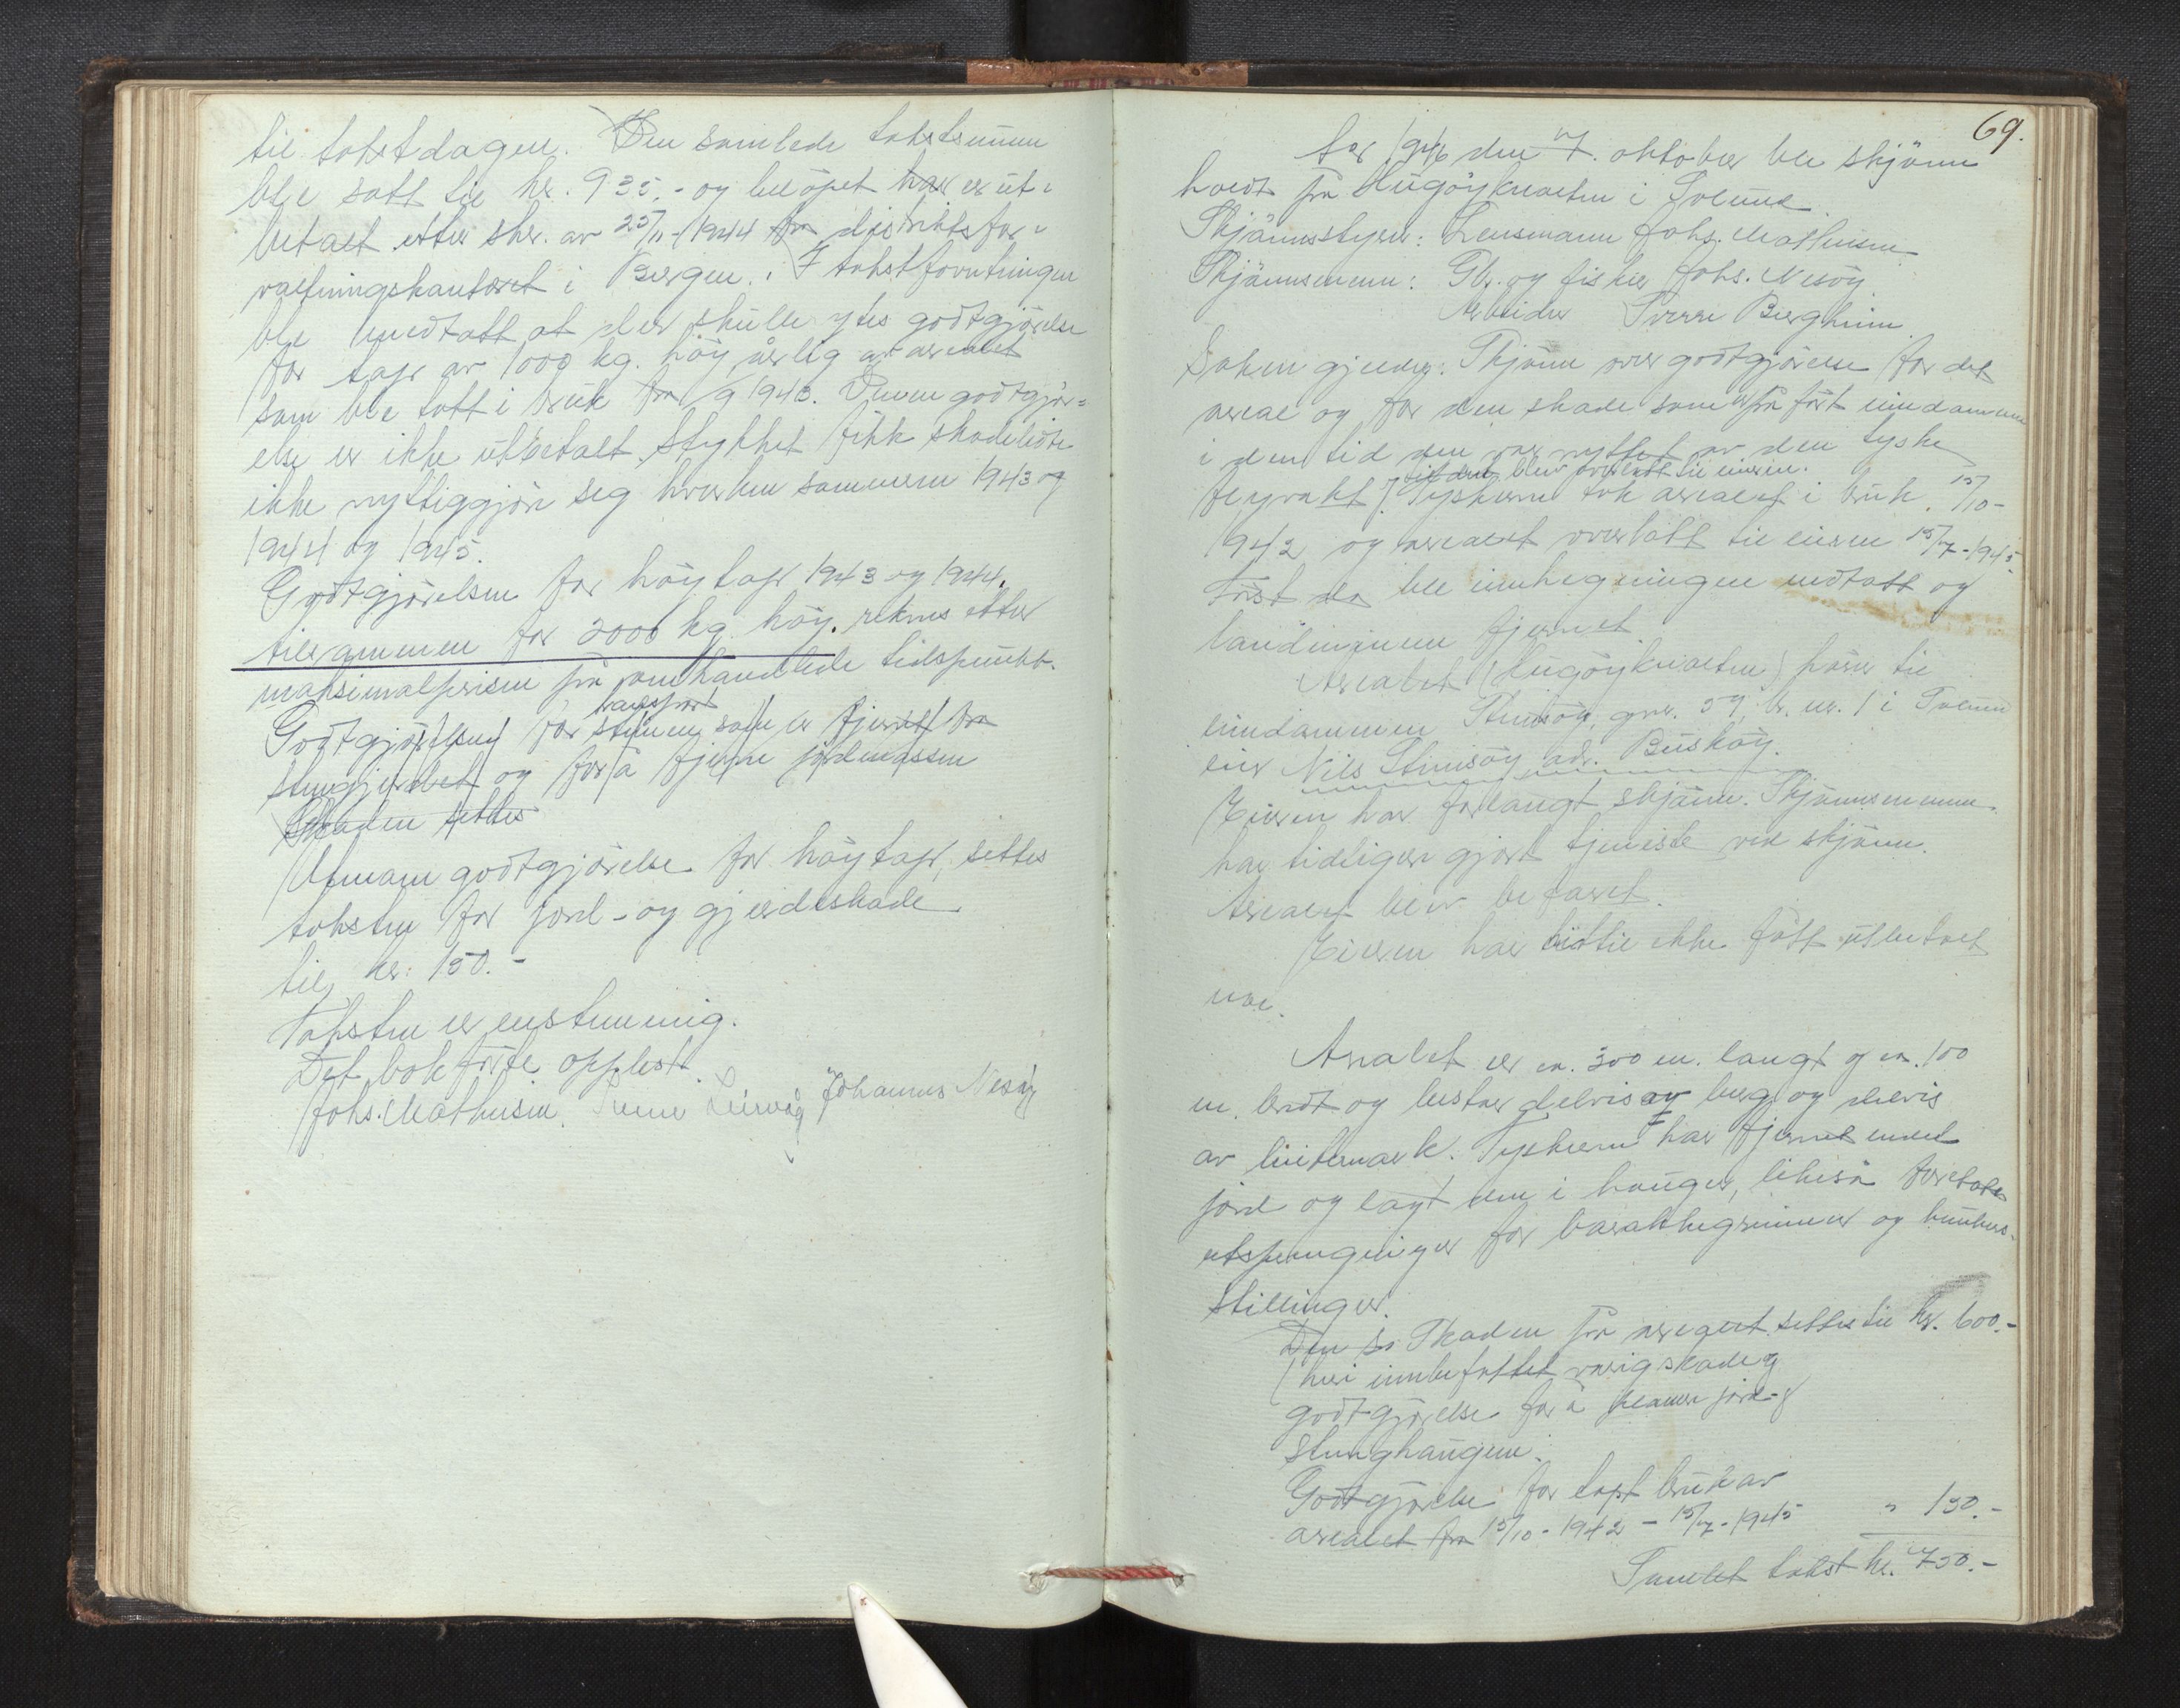 til takstdagen. Den samlede takstsummen
ble satt til kr. 935.- og beløpet har er ut-
betalt etter skr. av 25/11-1944 fra distriktsfor-
valtningskontoret i Bergen. I takstforretningen
ble medtatt at der skulle ytes godtgjørelse
for tap av 1000 kg. høy årlig av arealet
som ble tatt i bruk fra 1/9 1943. Denne godtgjør-
else er ikke utbetalt. Stykket fikk skadelidte
ikke nyttiggjøre seg hverken sommeren 1943 og
1944 og 1945.
Godtgjørelsen for høytap 1943 og 1944,
tilsammen for 2000 kg. høy. reknes etter
maksimalprisen på omhandlede tidspunkt.
transport
Godtgjørelsen for stenen som er fjernet fra
stengjerdet og for å fjerne jordmassen
Skaden settes
Utenom godtgjørelse for høytap, settes
taksten for jord- og gjerdeskade
til kr. 150.-
Taksten er enstemmig.
Det bokførte opplest.
Johs. Mathisen. Leirvåg Johannes Nesøy
69.
År 1946 den 7. oktober ble skjønn
holdt på Hugøyknalten i Solund
Skjønnsstyrer: Lensmann Johs. Mathisen
Skjønnsmenn: Gbr. og fisker Johs. Nesøy
Arbeider Sverre Bergheim.
Saken gjelder: Skjønn over godtgjørelse for det
areal og for den skade som er påført eiendommen
i den tid den var nyttet av den tyske
til den blev overlatt til eieren.
flyvakt. Tyskerne tok arealet i bruk 15/10-
1942 og arealet overlatt til eieren 15/7-1945.
Først da ble innhegningen nedtatt og
landminene fjernet.
Arealet (Hugøyknalten) hører til
eiendommen Steinsøy, gnr. 59, br. nr. 1 i Solund
eier Nils Steinsøy, adr. Buskøy.
Eieren har forlangt skjønn. Skjønnsmennene
har tidligere gjort tjeneste ved skjønn.
Arealet blev befaret.
Eieren har hittil ikke fått utbetalt
noe.
Arealet er ca. 300 m. langt og ca. 100
m. bredt og består delvis av berg og delvis
av beitemark. Tyskerne har fjernet endel
jord og lagt den i hauger, likeså foretatt
utsprengninger for barakkegrunner og bunkers-
stillinger.
Den s. Skaden på arealet settes til kr. 600.-
(heri innbefattet varig skade og
godtgjørelse for å planere jord- og
stenghaugene.
Godtgjørelse for tapt bruk av
arealet fra 15/10-1942 - 15/7-1945 " 150.-
Samlet takst kr. 750.-